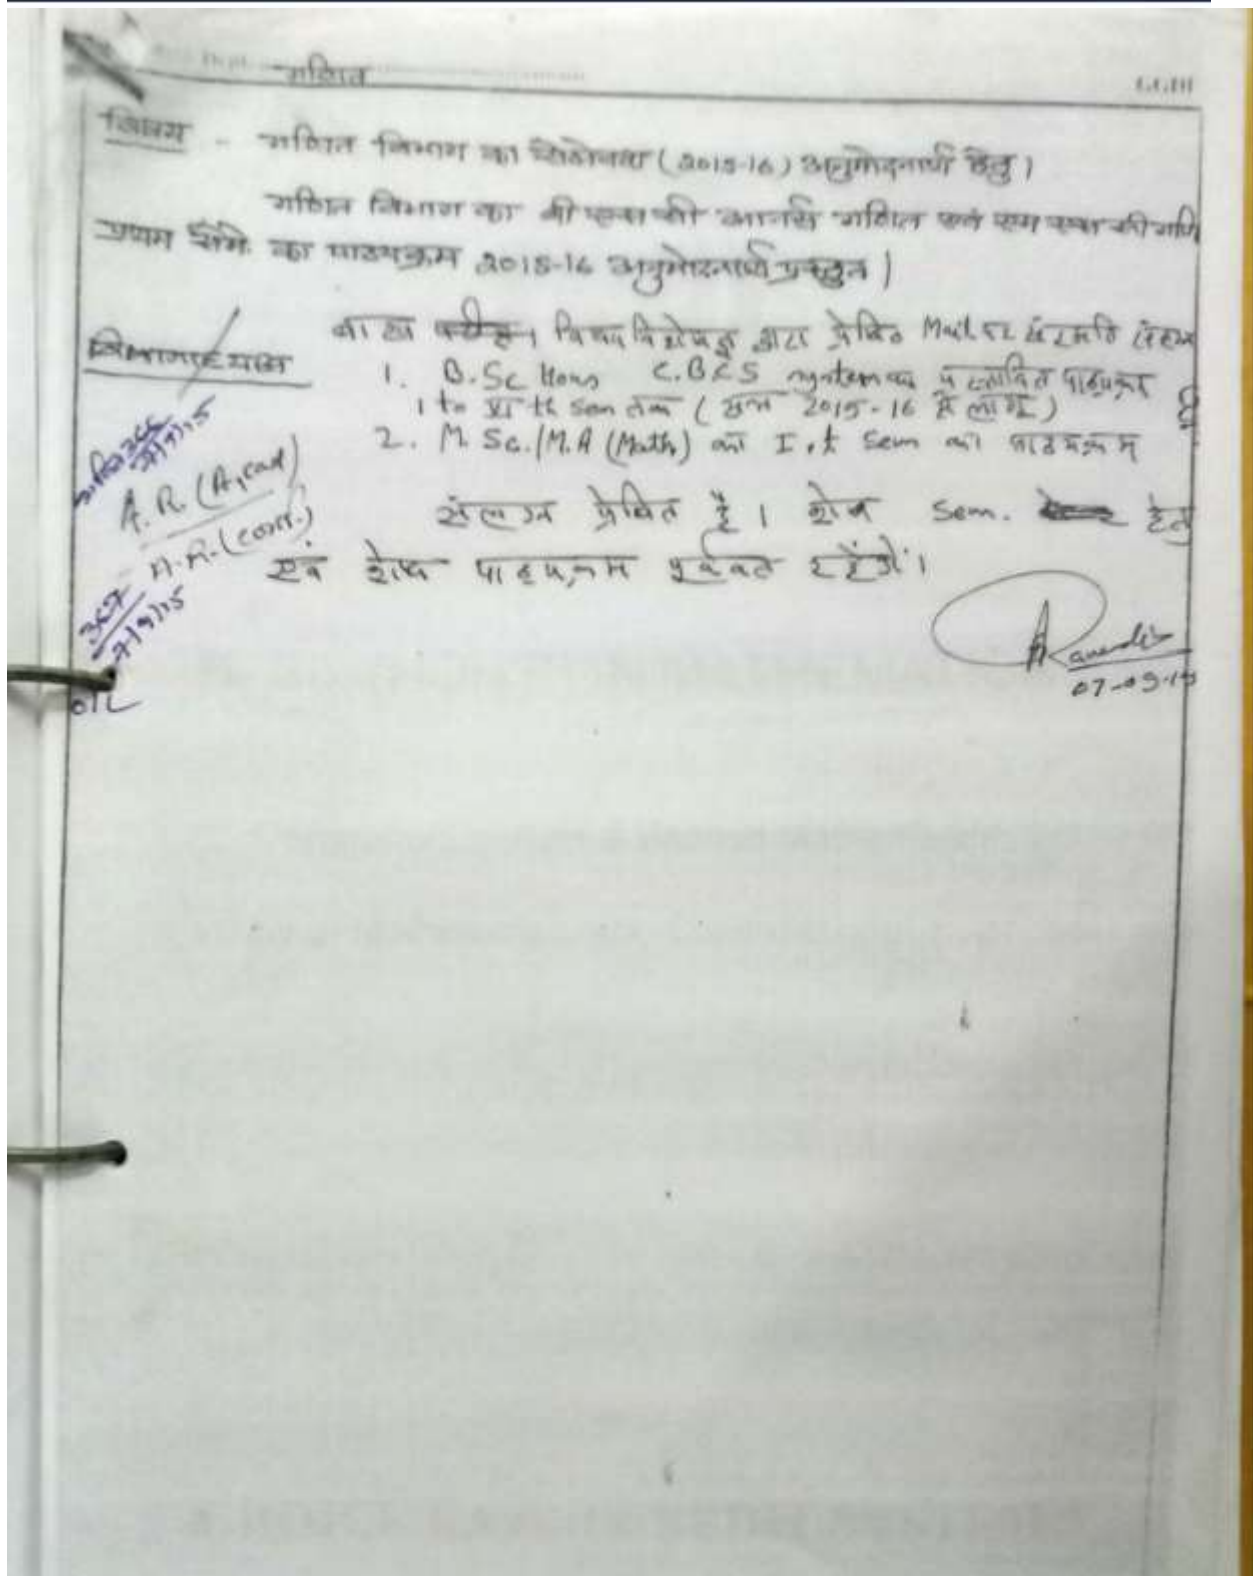 गणित
विषय - गणित विभाग का सिलेबस (2015-16) अनुमोदनार्थ हेतु।
गणित विभाग का बी एस सी आनर्स गणित एवं एम एस सी गणि
प्रथम सेमे. का पाठ्यक्रम 2015-16 अनुमोदनार्थ प्रस्तुत।
विभागाध्यक्ष
बाह्य विषय विशेषज्ञ द्वारा प्रेषित Mail पर संस्तुति
1. B.Sc Hons C.B.C.S system का प्रस्तावित पाठ्यक्रम
1 to VI th Sem तक (सत्र 2015-16 से लागू)
2. M.Sc./M.A (Math) का I st Sem का पाठ्यक्रम
संलग्न प्रेषित है। शेष Sem. हेतु
एवं शेष पाठ्यक्रम पूर्ववत रहेंगे।
366
7/9/15
A.R. (Acad)
A.R. (conf.)
367
7/9/15
07-09-15